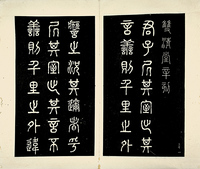 君子居其室出其
言善則千里之外
應之況其邇者乎
居其室出其言不
善則千里之外違